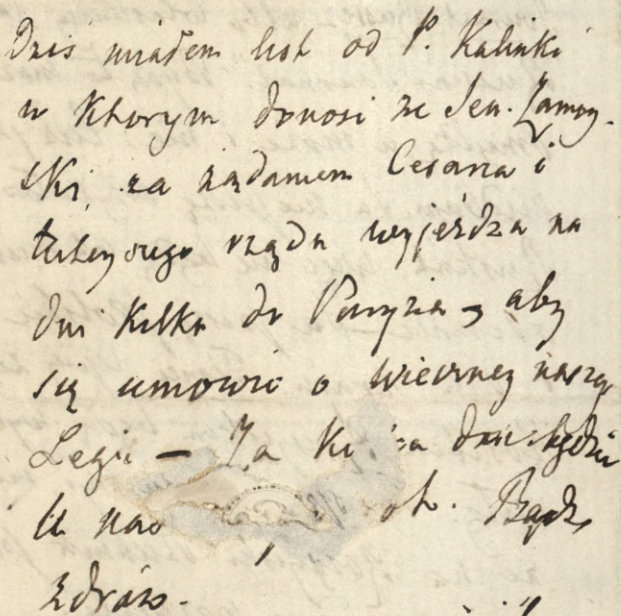 Dziś miałem list od P. Kalinki
w którym donosi że Jen. Zamoy-
ski, za żądaniem Cesarza i
tutejszego rządu wyjeżdza na
dni kilka do Paryża, aby
się umowić o naszey
Legii — Za dni będzie
u nas Bądź
zdrów.